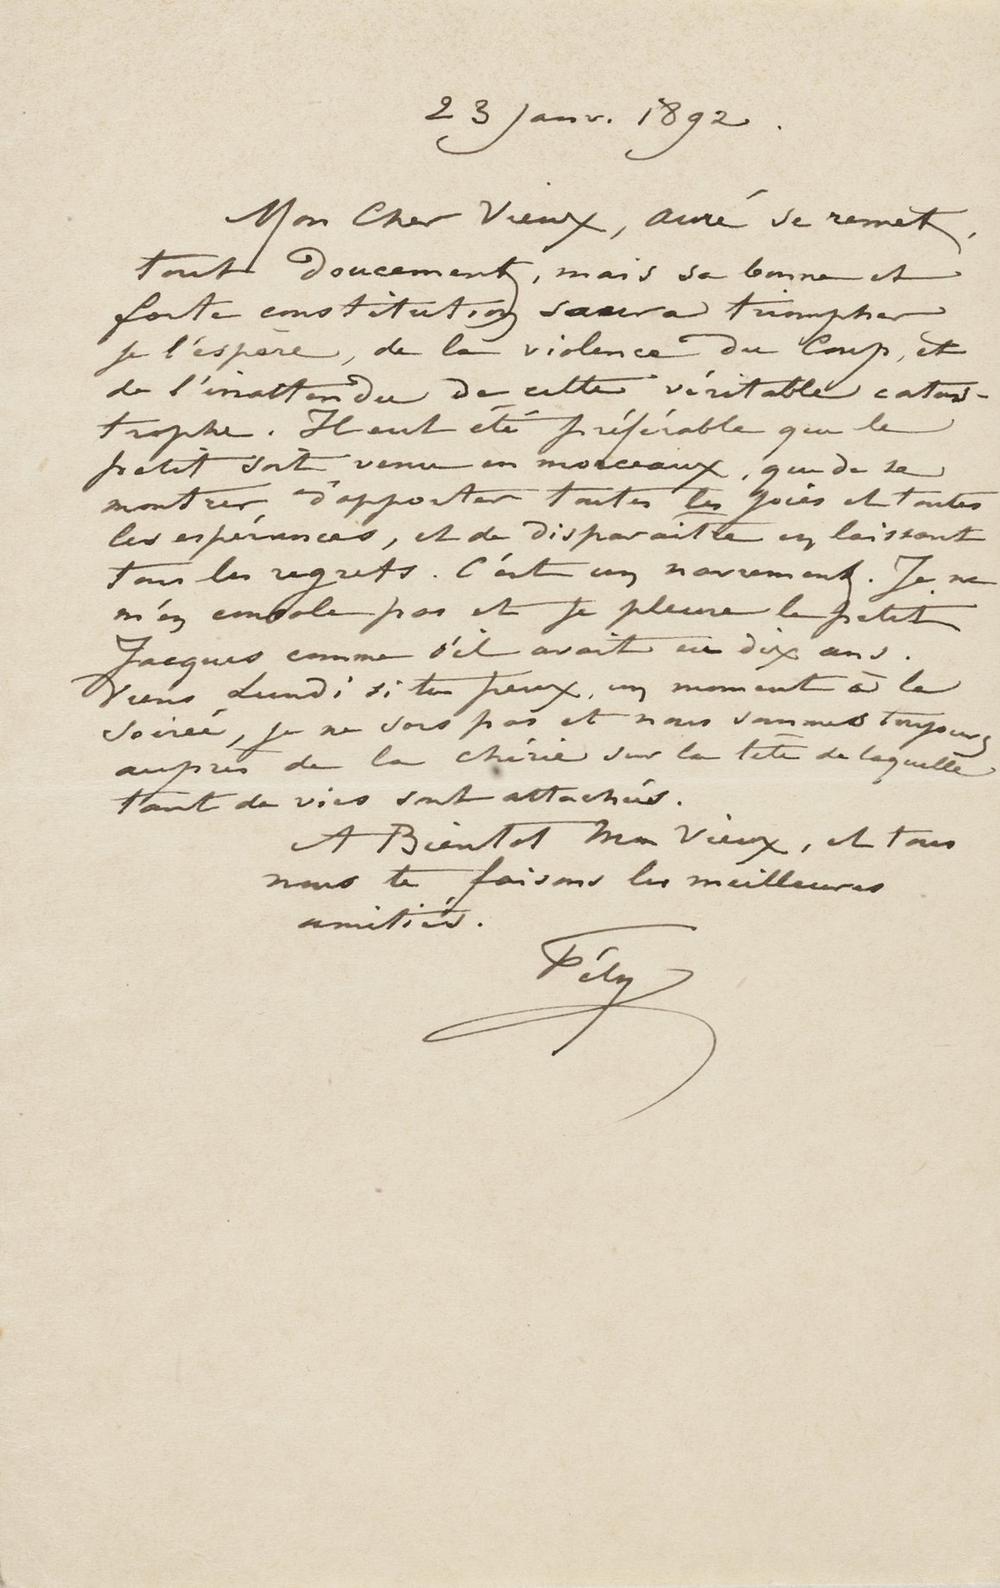 23 janv. 1892.
Mon Cher Vieux, Auré se remet,
tout doucement, mais sa bonne et
forte constitution saura triompher
je l'espère, de la violence du Coup, et
de l'inattendu de cette véritable catas-
trophe. Il eut été préférable que le
petit soit venu en morceaux, que de se
montrer, d'apporter toutes les joies et toutes
les espérances, et de disparaitre en laissant
tous les regrets. C'est un navrement. Je ne
m'en console pas et je pleure le petit
Jacques comme s'il avait eu dix ans.
Viens Lundi si tu peux, un moment à la
soireé, je ne sors pas et nous sommes toujours
auprès de la chérie sur la tête de laquelle
tant de vies sont attachées.
A Bientot Mon Vieux, et tous
nous te faisons les meilleures
amitiés.
Fély